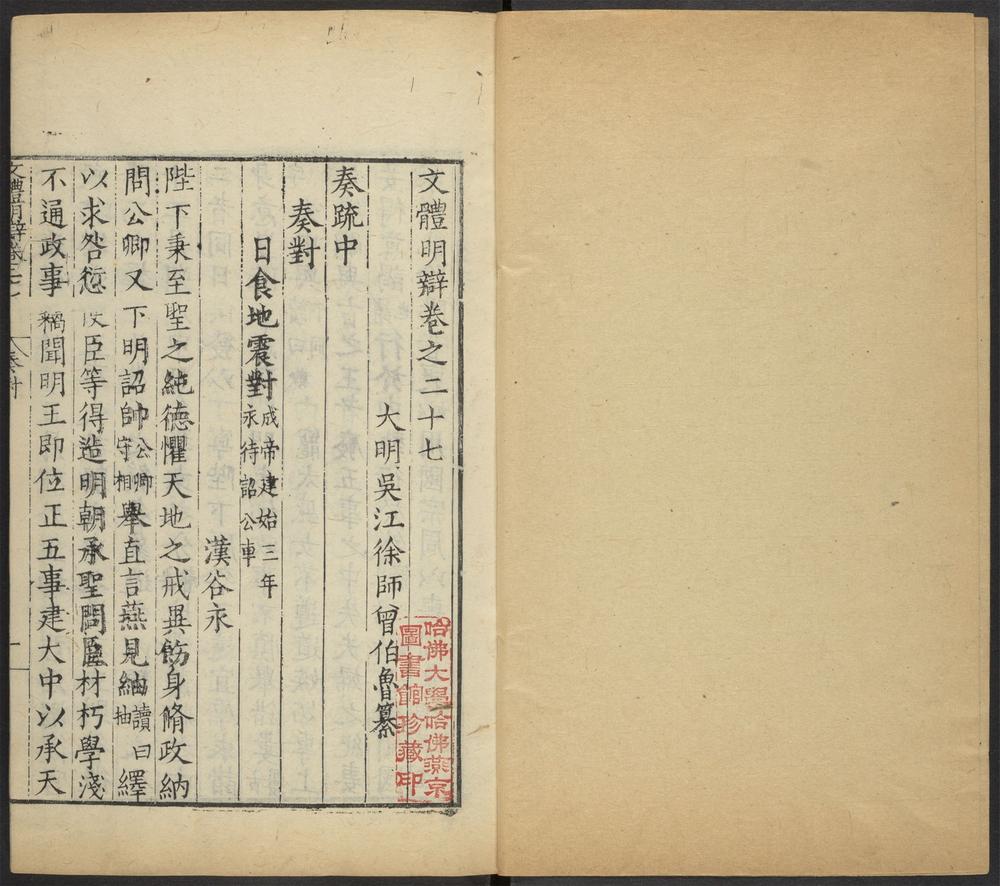 文體明辯卷之二十七
大明吳江徐師曾伯魯纂
奏疏中
奏對
日食地震對成帝建始三年永待詔公車
漢谷永
陛下秉至聖之純德懼天地之戒異飭身脩政納
問公卿又下明詔帥公卿守相舉直言燕見紬讀曰抽繹
以求咎愆使臣等得造明朝承聖問臣材朽學淺
不通政事竊聞明王即位正五事建大中以承天
文體明辯卷二十七
奏對
一
哈佛大學哈佛燕京
圖書館珍藏印